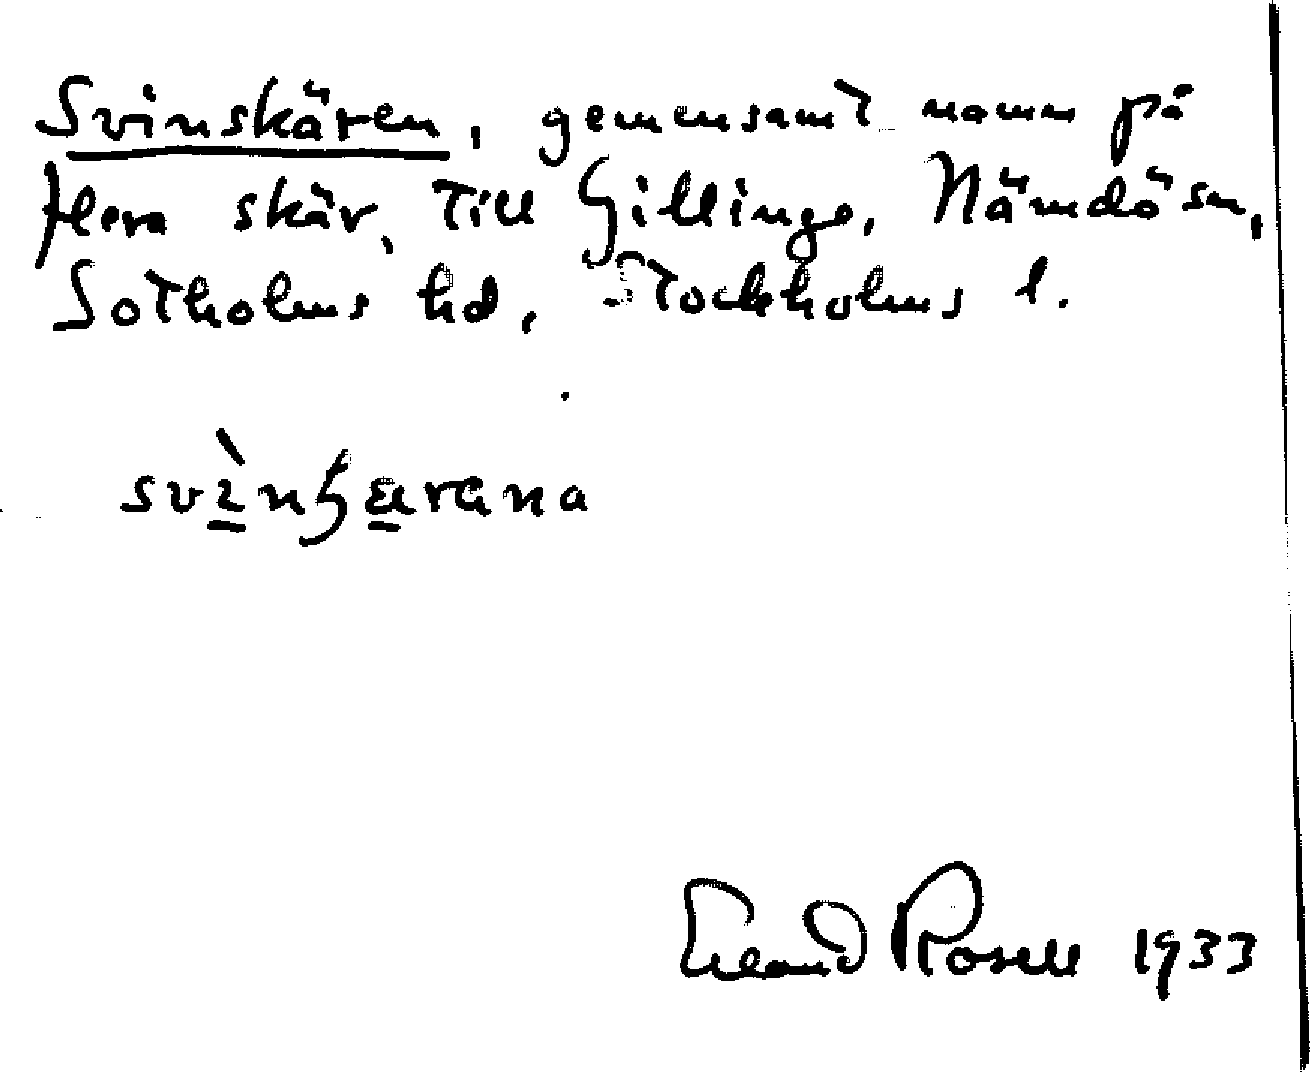 Svinskären, gemensamt namn på
flera skär, till Gillinge, Nämdö sn,
Sotholms hd, Stockholms l.
Erland Rosell 1933